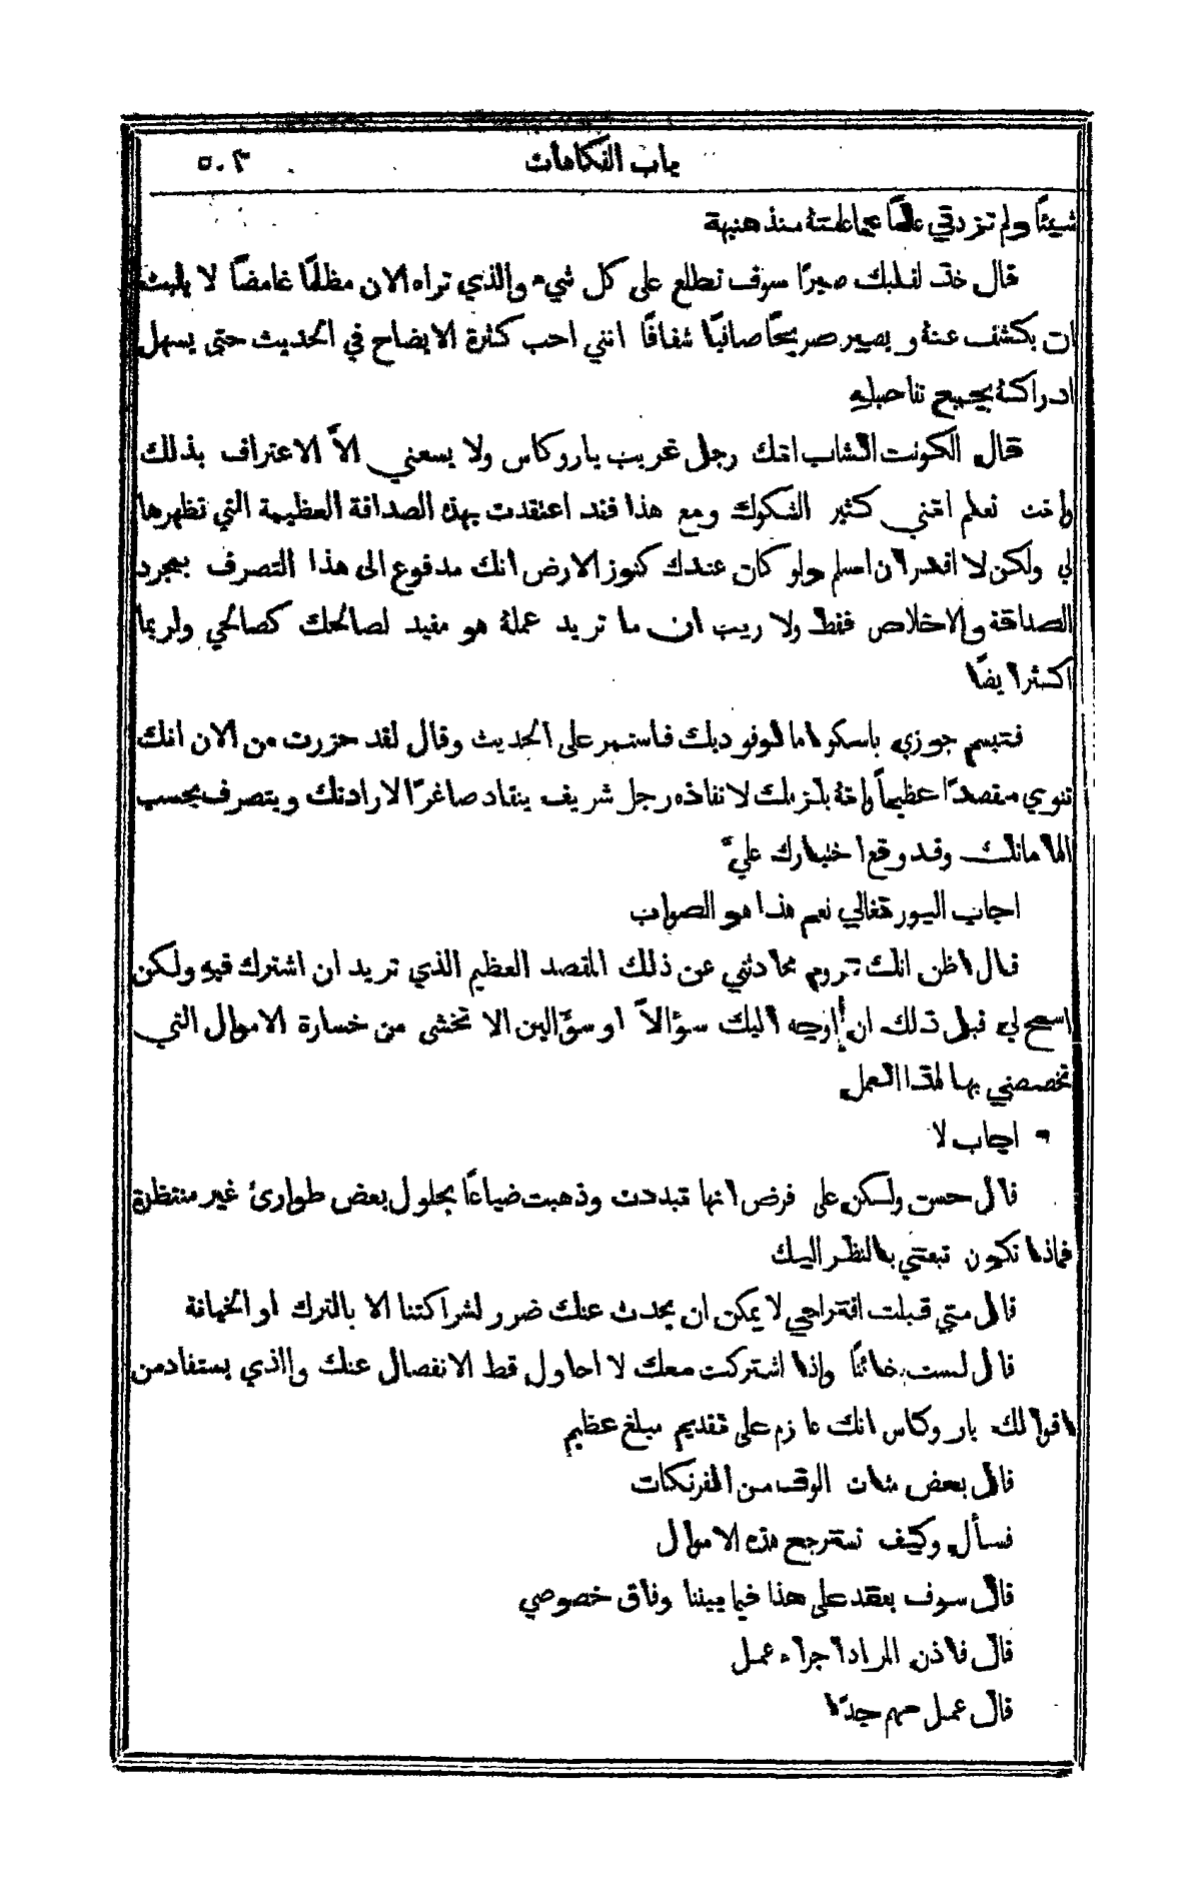 باب الفكاهات ٥٠٣
شيئًا ولم تزدني علمًا عما علمتهُ منذ هنيهة
قال خذ لقلبك صبرًا سوف تطلع على كل شيء والذي تراه الان مظلمًا غامضًا لا يلبث
ان يكشف عنهُ ويصير صريحًا صافيًا شفافًا انني احب كثرة الايضاح في الحديث حتى يسهل
ادراكهُ بجميع تفاصيله
قال الكونت الشاب انك رجل غريب ياروكاس ولا يسعني الاَّ الاعتراف بذلك
وانت تعلم انني كثير الشكوك ومع هذا فقد اعتقدت بهذه الصداقة العظيمة التي تظهرها
لي ولكن لا اقدر ان اسلم ولو كان عندك كنوز الارض انك مدفوع الى هذا التصرف بمجرد
الصداقة والاخلاص فقط ولا ريب ان ما تريد عملهُ هو مفيد لصالحك كصالحي ولربما
اكثر ايضًا
فتبسم جوزي باسكو اما لوفوديك فاستمر على الحديث وقال لقد حزرت من الان انك
تنوي مقصدًا عظيمًا وانهُ يلزمك لانفاذه رجل شريف ينقاد صاغرًا لارادتك ويتصرف بحسب
الهاماتك وقد وقع اختيارك عليَّ
اجاب البورتغالي نعم هذا هو الصواب
قال اظن انك تروم محادثتي عن ذلك المقصد العظيم الذي تريد ان اشترك فيه ولكن
اسمح لي قبل ذلك ان أوجه اليك سؤالاً او سؤَالين الا تخشى من خسارة الاموال التي
تخصصني بها لهذا العمل
اجاب لا
قال حسن ولكن على فرض انها تبددت وذهبت ضياعًا بحلول بعض طوارئ غير منتظرة
فماذا تكون تبعتي بالنظر اليك
قال متى قبلت اقتراحي لا يمكن ان يحدث عنك ضرر لشراكتنا الا بالترك او الخيانة
قال لست خائنًا واذا اشتركت معك لا احاول قط الانفصال عنك والذي يستفاد من
اقوالك ياروكاس انك عازم على تقديم مبلغ عظيم
قال بعض مئات الوف من الفرنكات
فسأل وكيف تسترجع هذه الاموال
قال سوف يعقد على هذا فيما بيننا وفاق خصوصي
قال فاذن المراد اجراء عمل
قال عمل مهم جدًّا